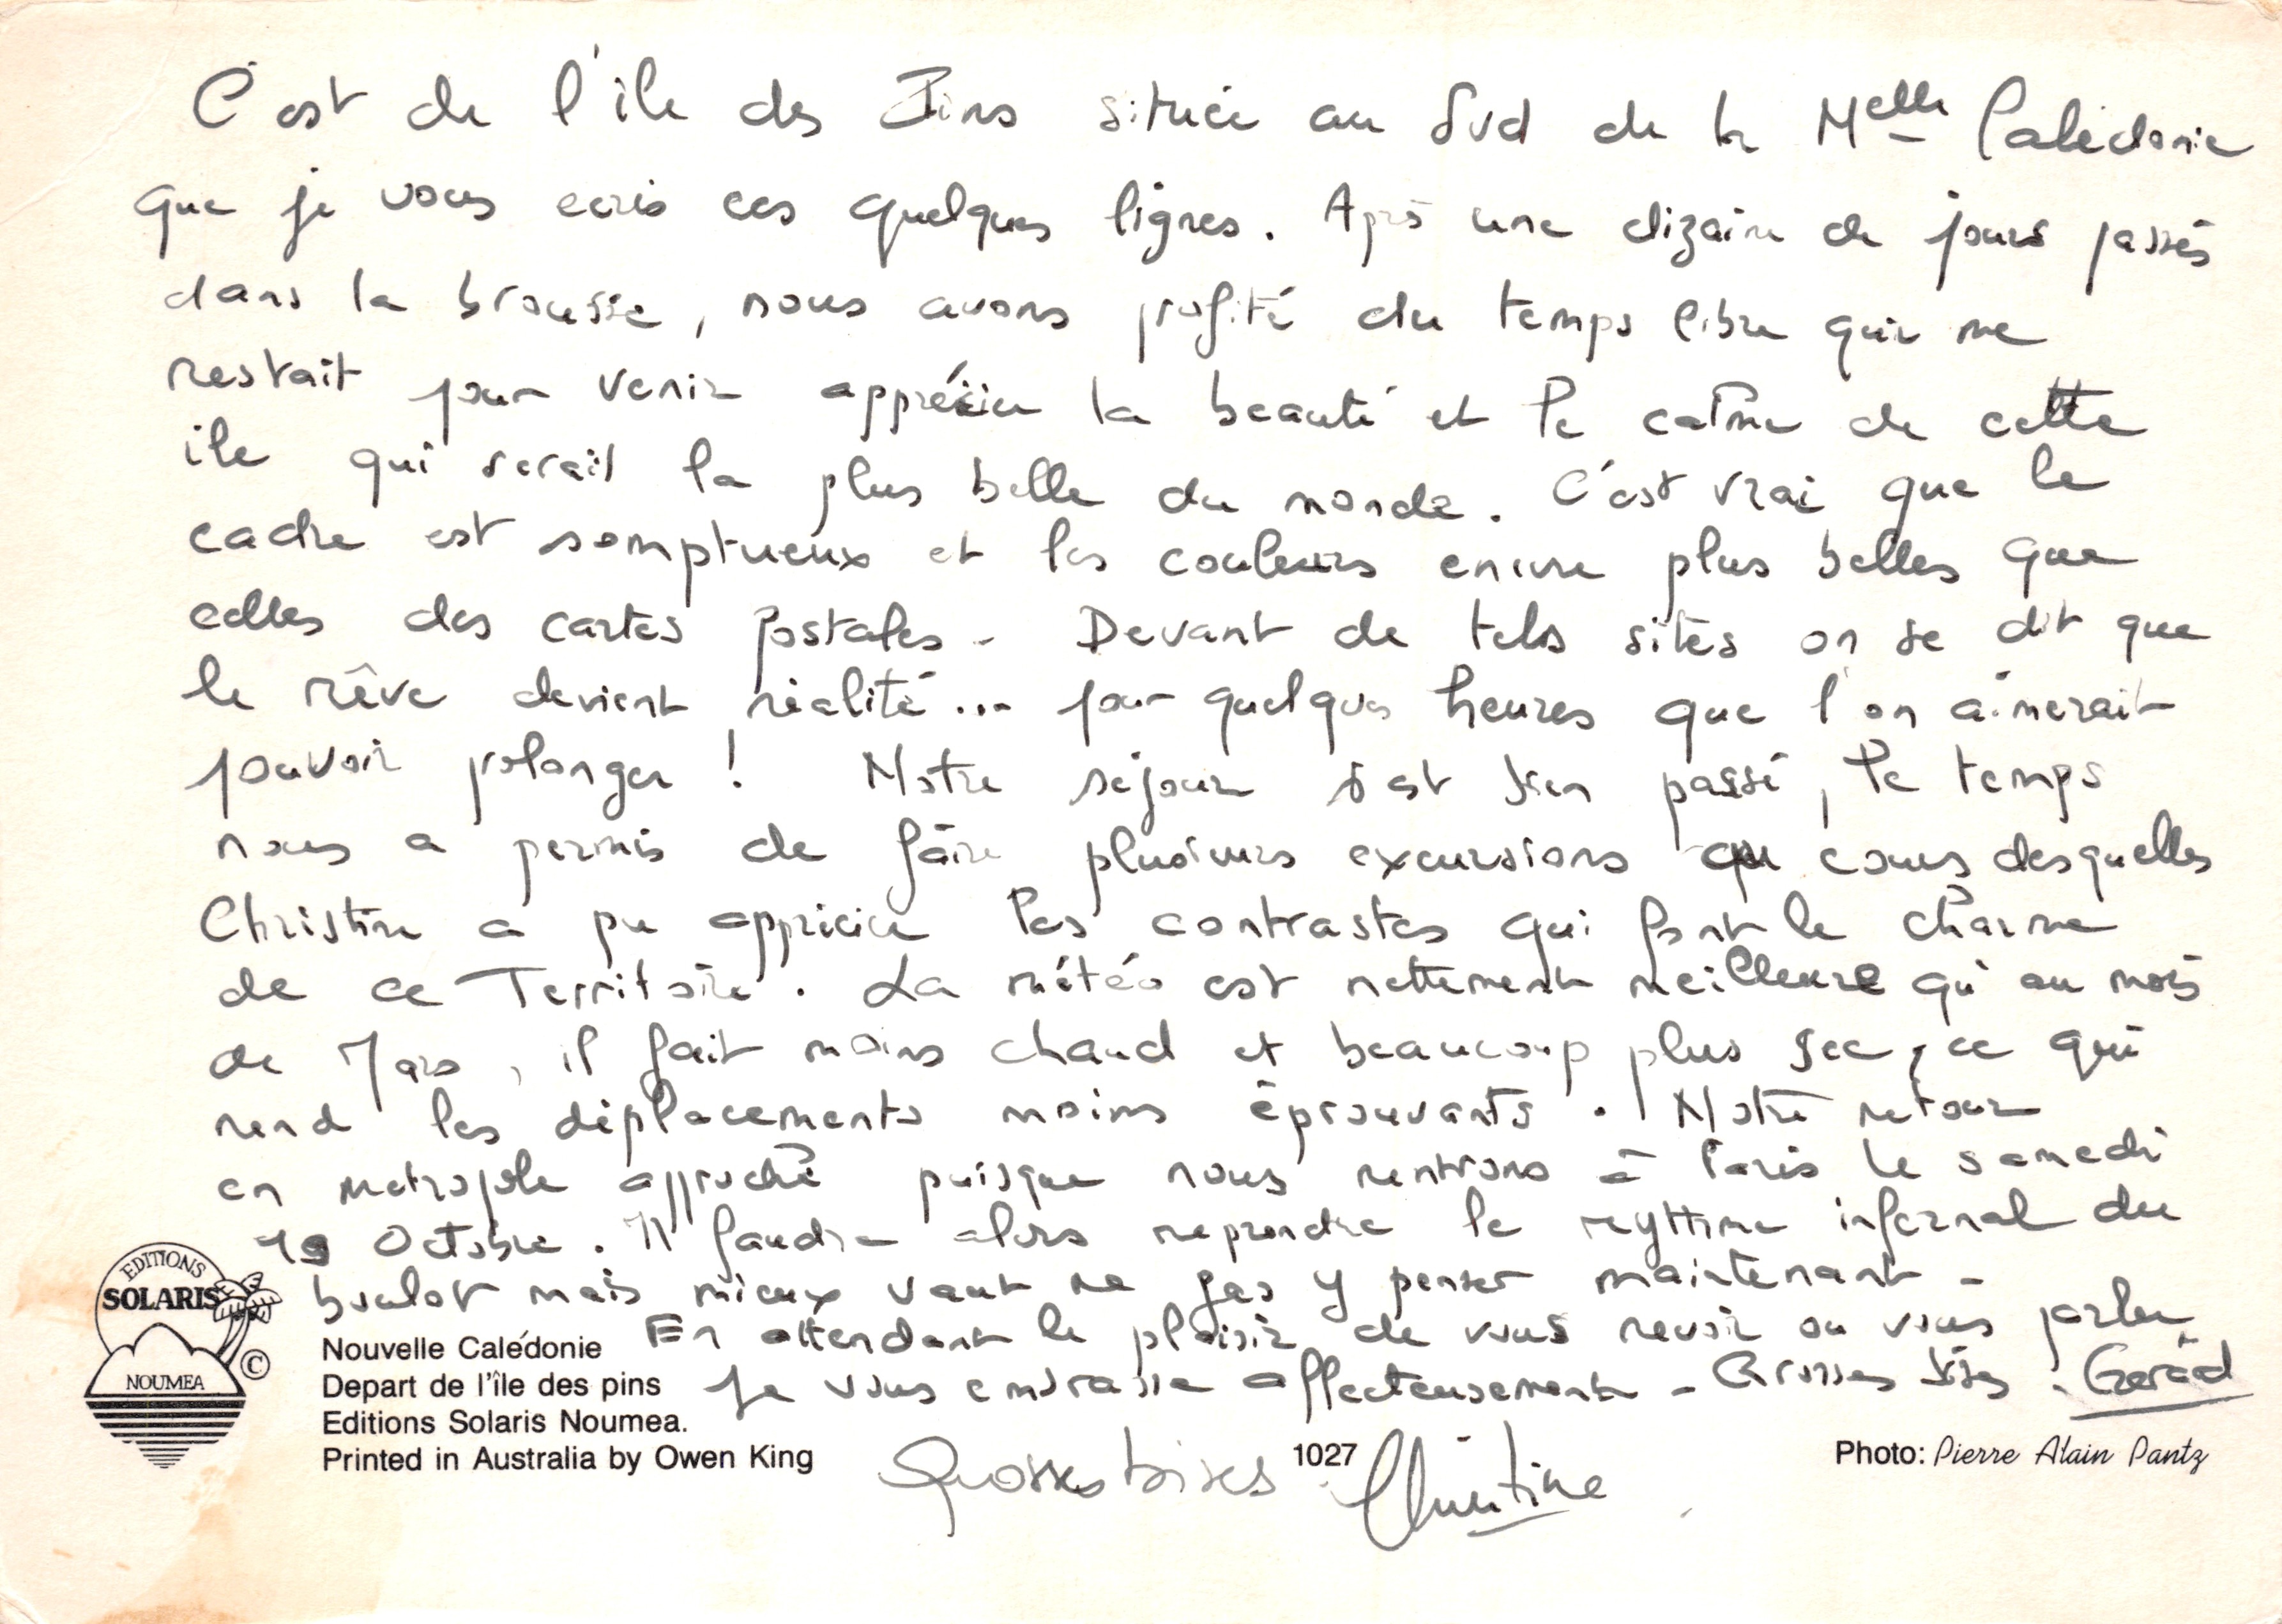 C'est de l'île des Pins située au Sud de la Nelle Calédonie
que je vous ecris ces quelques lignes. Après une dizaine de jours passés
dans la brousse, nous avons profité du temps libre qui me
restait pour venir apprécier la beauté et le calme de cette
ile qui serait la plus belle du monde. C'est vrai que le
cadre est somptueux et les couleurs encore plus belles que
celles des cartes postales - Devant de tels sites on se dit que
le rêve devient réalité... pour quelques heures que l'on aimerait
pouvoir prolonger ! Notre séjour s'est bien passé, le temps
nous a permis de faire plusieurs excursions au cours desquelles
Christine a pu apprécier les contrastes qui font le charme
de ce Territoire. La météo est nettement meilleure qu'au mois
de Mars, il fait moins chaud et beaucoup plus sec, ce qui
rend les déplacements moins éprouvants. Notre retour
en metropole approche puisque nous rentrons à Paris le samedi
19 Octobre. Il faudra alors reprendre le rythme infernal du
boulot mais mieux vaut ne pas y penser maintenant -
En attendant le plaisir de vous revoir ou vous parler
Je vous embrasse affectueusement - Grosses bises. Gérard
Grosses bises Christine
EDITIONS
SOLARIS
NOUMEA
©
Nouvelle Calédonie
Depart de l'île des pins
Editions Solaris Noumea.
Printed in Australia by Owen King
1027
Photo: Pierre Alain Pantz